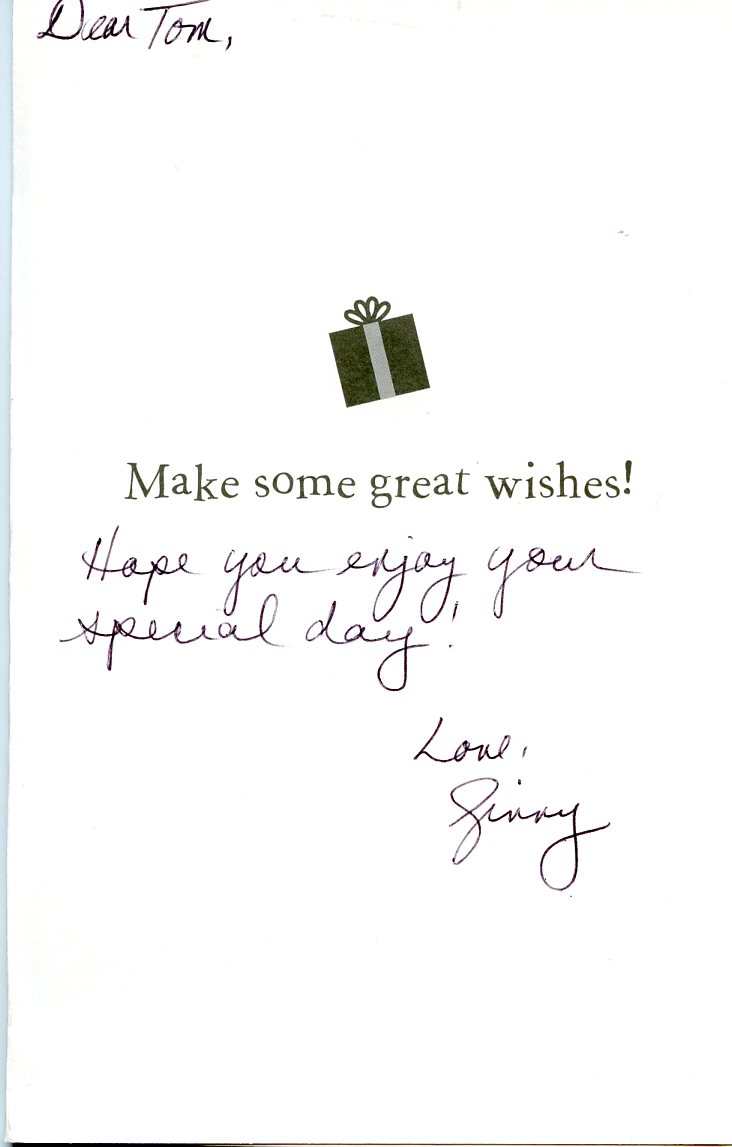 Dear Tom,
Make some great wishes!
Hope you enjoy your
special day!
Love,
Ginny